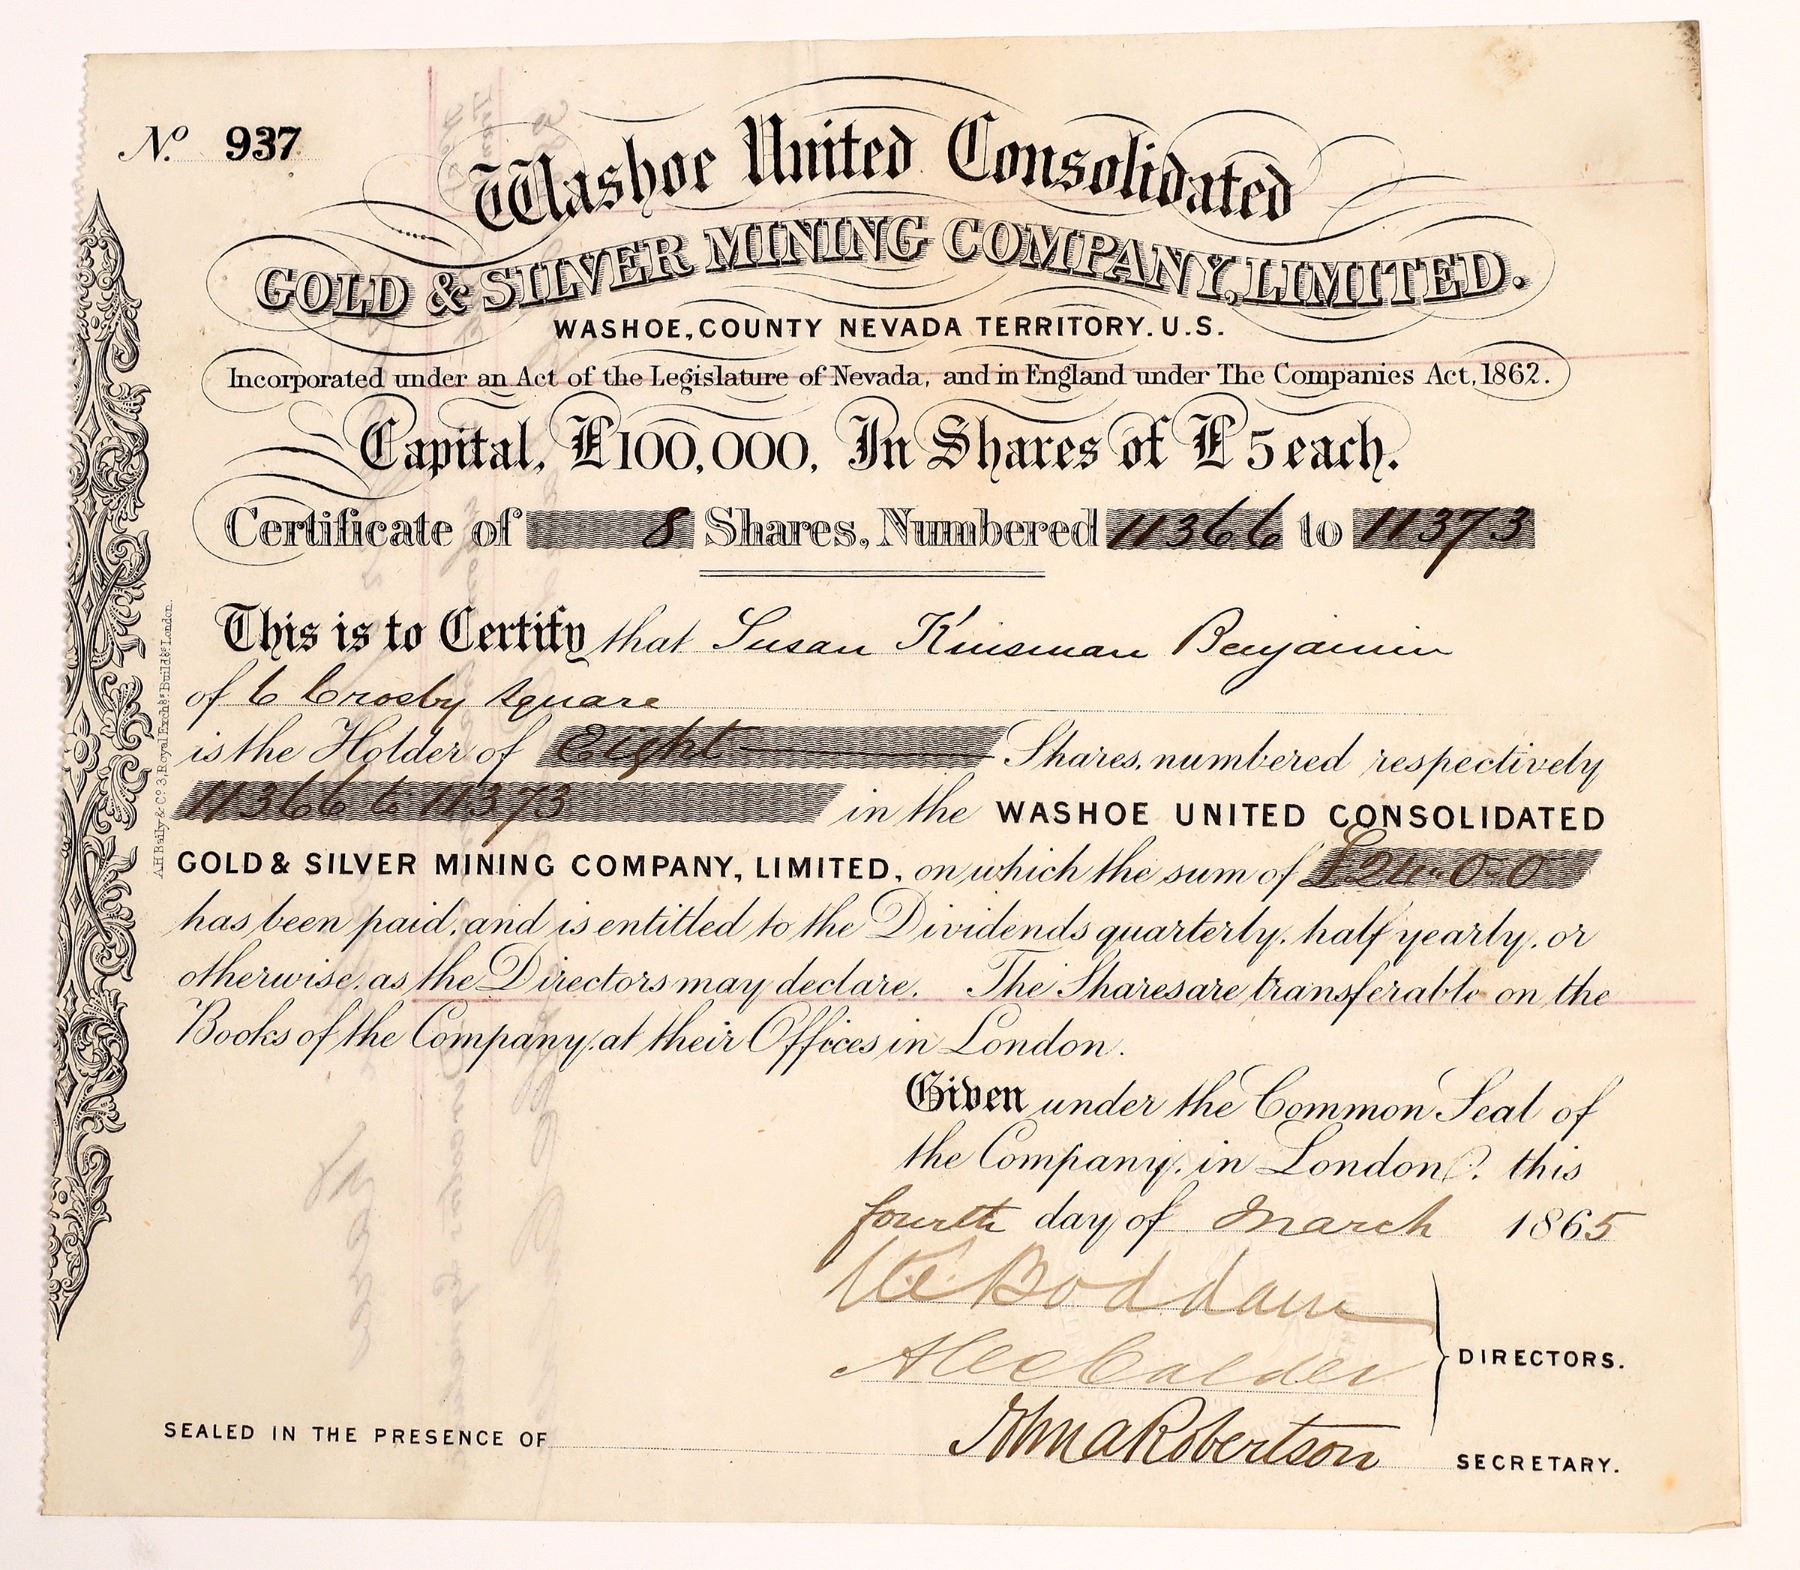 No. 937
Washoe United Consolidated
GOLD & SILVER MINING COMPANY, LIMITED.
WASHOE, COUNTY NEVADA TERRITORY. U.S.
Incorporated under an Act of the Legislature of Nevada, and in England under The Companies Act, 1862.
Capital, £100,000, In Shares of £5 each.
Certificate of 8 Shares, Numbered 11366 to 11373
This is to Certify that Susan Kinsman Benjamin
of 6 Crosby Square
is the Holder of Eight Shares, numbered respectively
11366 to 11373 in the WASHOE UNITED CONSOLIDATED
GOLD & SILVER MINING COMPANY, LIMITED, on which the sum of £24-0-0
has been paid, and is entitled to the Dividends quarterly, half yearly, or
otherwise, as the Directors may declare. The Shares are transferable on the
Books of the Company, at their Offices in London.
Given under the Common Seal of
the Company, in London, this
fourth day of March 1865
Boddam
Alex Calder
DIRECTORS.
John A Robertson
SEALED IN THE PRESENCE OF
SECRETARY.
A.H. Baily & Co. 3, Royal Exchge. Buildgs. London.